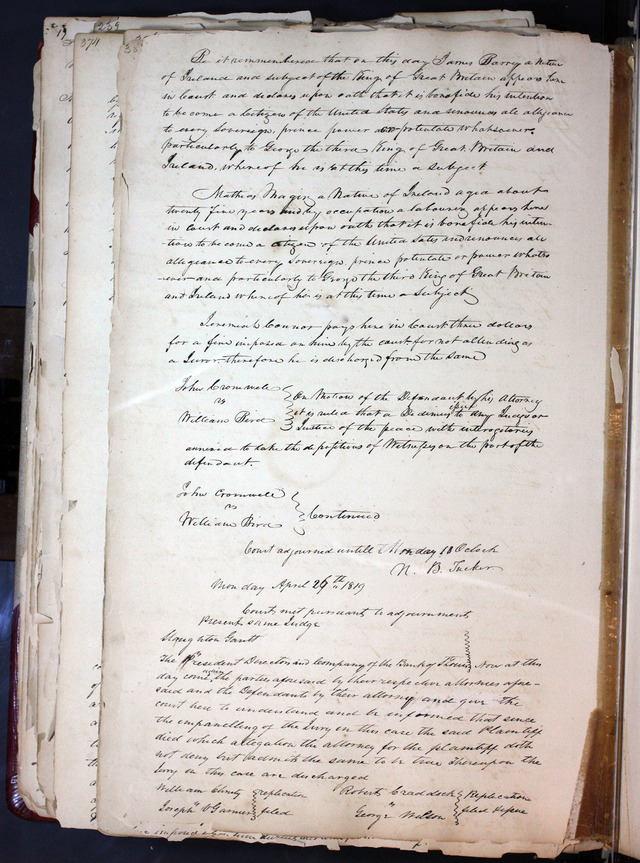 Be it remembered that on this day James Barry a Native
of Ireland and subject of the King of Great Britain appears here
in Court and declares upon oath that it is bonafide his intention
to become a Citizen of the United States and renounces all allegiance
to every Sovereign, prince power or potentate whatsoever
particularly to George the third King of Great Britain and
Ireland, whereof he is at this time a Subject
Mathas Magin a Native of Ireland aged about
twenty five years and by occupation a labourer appears here
in court and declares upon oath that it is bonafide his inten-
tion to become a citizen of the United States and renounces all
allegiance to every Sovereign, prince potentate or power whatso
ever and particularly to George the third King of Great Britain
and Ireland whereof he is at this time a Subject
Jeremiah Connor pays here in Court three dollars
for a fine imposed on him by the court for not attending as
a Juror therefore he is discharged from the same
John Cromwell
vs
William Bird
On Motion of the Defendant by his Attorney
it is ruled that a Dedimus to any Judge or
Justice of the peace with interogatories
annexed to take the depositions of Witnesses on the part of the
defendant.
John Cromwell
vs
William Bird
Continued
Court adjourned untill Monday 10 Oclock
N. B. Tucker
Monday April 26th 1819
Court met pursuant to adjournment
Present same Judge
Stoughton Gantt
vs
The President Directors and Company of the Bank of St Louis
Now at this
day come again the parties aforesaid by their respective attornies afore-
said and the Defendants by their attorney and give the
court here to understand and be informed that since
the empannelling of the Jury in this case the said Plaintiff
died which allegation the attorney for the plaintiff doth
not deny but admits the same to be true Thereupon the
Jury in this case are discharged
William Christy
vs
Joseph
replication
filed
Robert Craddock
vs
George Wilson
Replication
filed